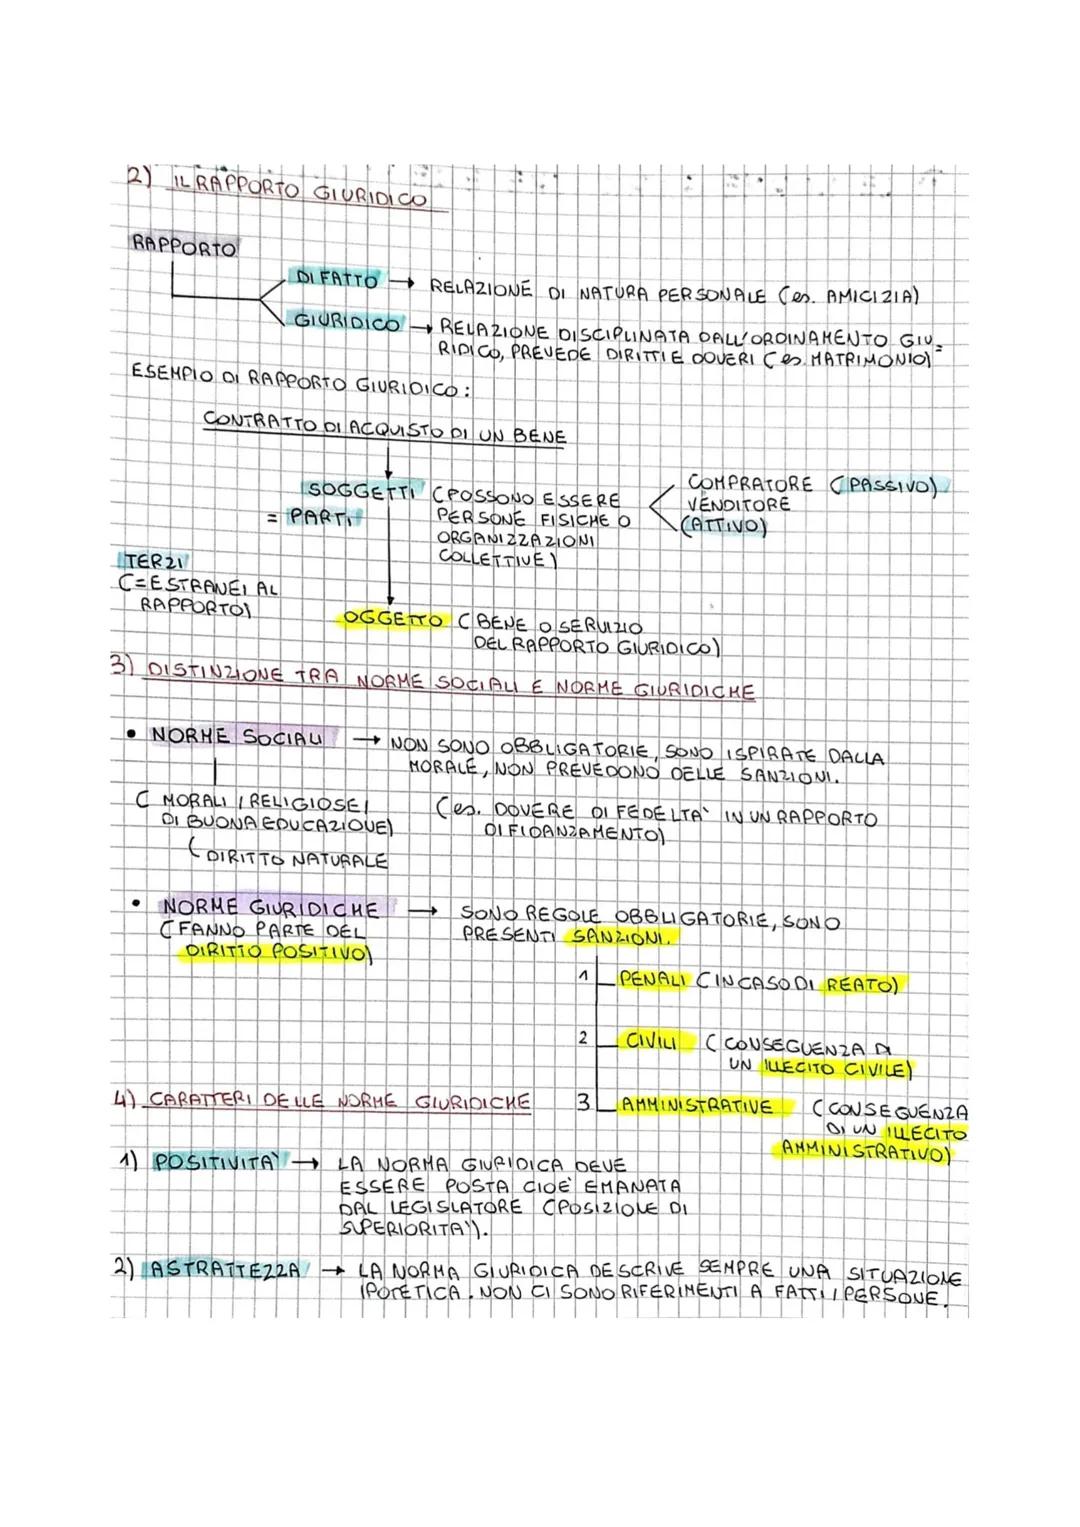 2) IL RAPPORTO GIURIDICO
RAPPORTO
DI FATTO → RELAZIONE DI NATURA PERSONALE (es. AMICIZIA)
GIURIDICO → RELAZIONE DISCIPLINATA DALL'ORDINAMENTO GIU=
RIDICO, PREVEDE DIRITTI E DOVERI (es. MATRIMONIO)
ESEMPIO DI RAPPORTO GIURIDICO:
CONTRATTO DI ACQUISTO DI UN BENE
SOGGETTI (POSSONO ESSERE
= PARTI PERSONE FISICHE O
ORGANIZZAZIONI
COLLETTIVE)
COMPRATORE (PASSIVO)
VENDITORE
(ATTIVO)
TERZI
(=ESTRANEI AL
RAPPORTO)
OGGETTO (BENE O SERVIZIO
DEL RAPPORTO GIURIDICO)
3) DISTINZIONE TRA NORME SOCIALI E NORME GIURIDICHE
• NORME SOCIALI → NON SONO OBBLIGATORIE, SONO ISPIRATE DALLA
MORALE, NON PREVEDONO DELLE SANZIONI.
( MORALI, RELIGIOSE,
DI BUONA EDUCAZIONE)
(es. DOVERE DI FEDELTA' IN UN RAPPORTO
DI FIDANZAMENTO)
DIRITTO NATURALE
• NORME GIURIDICHE → SONO REGOLE OBBLIGATORIE, SONO
(FANNO PARTE DEL PRESENTI SANZIONI.
DIRITTO POSITIVO)
1 PENALI (IN CASO DI REATO)
2 CIVILI (CONSEGUENZA DI
UN ILLECITO CIVILE)
3 AMMINISTRATIVE (CONSEGUENZA
DI UN ILLECITO
AMMINISTRATIVO)
4) CARATTERI DELLE NORME GIURIDICHE
1) POSITIVITA' → LA NORMA GIURIDICA DEVE
ESSERE POSTA CIOE' EMANATA
DAL LEGISLATORE (POSIZIONE DI
SUPERIORITA').
2) ASTRATTEZZA → LA NORMA GIURIDICA DESCRIVE SEMPRE UNA SITUAZIONE
IPOTETICA. NON CI SONO RIFERIMENTI A FATTI, PERSONE.